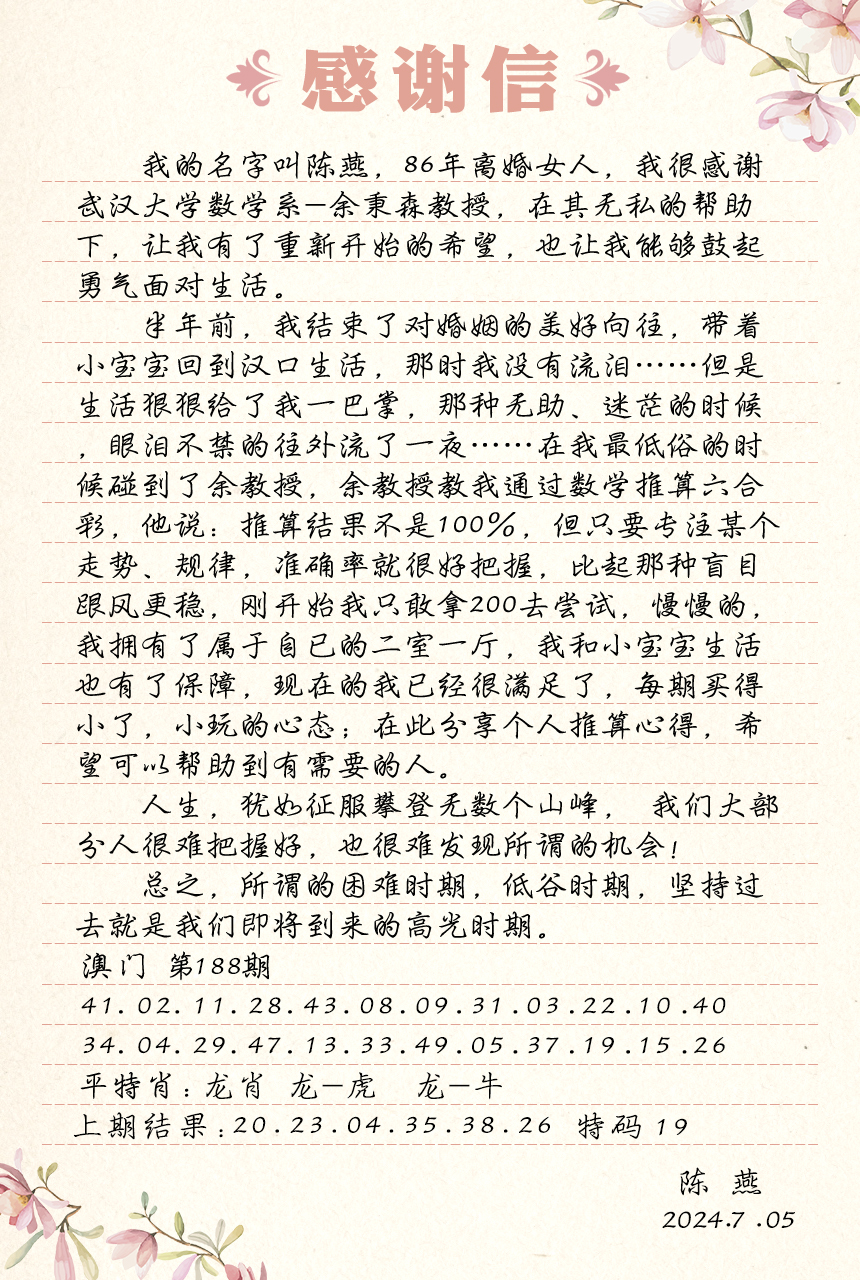 感谢信
我的名字叫陈燕，86年离婚女人，我很感谢
武汉大学数学系—余秉森教授，在其无私的帮助
下，让我有了重新开始的希望，也让我能够鼓起
勇气面对生活。
半年前，我结束了对婚姻的美好向往，带着
小宝宝回到汉口生活，那时我没有流泪……但是
生活狠狠给了我一巴掌，那种无助、迷茫的时候
，眼泪不禁的往外流了一夜……在我最低俗的时
候碰到了余教授，余教授教我通过数学推算六合
彩，他说：推算结果不是100%，但只要专注某个
走势、规律，准确率就很好把握，比起那种盲目
跟风更稳，刚开始我只敢拿200去尝试，慢慢的，
我拥有了属于自已的二室一厅，我和小宝宝生活
也有了保障，现在的我已经很满足了，每期买得
小了，小玩的心态；在此分享个人推算心得，希
望可以帮助到有需要的人。
人生，犹如征服攀登无数个山峰， 我们大部
分人很难把握好，也很难发现所谓的机会！
总之，所谓的困难时期，低谷时期，坚持过
去就是我们即将到来的高光时期。
澳门 第188期
41.02.11.28.43.08.09.31.03.22.10.40
34.04.29.47.13.33.49.05.37.19.15.26
平特肖：龙肖 龙—虎 龙—牛
上期结果：20.23.04.35.38.26 特码 19
陈 燕
2024.7.05